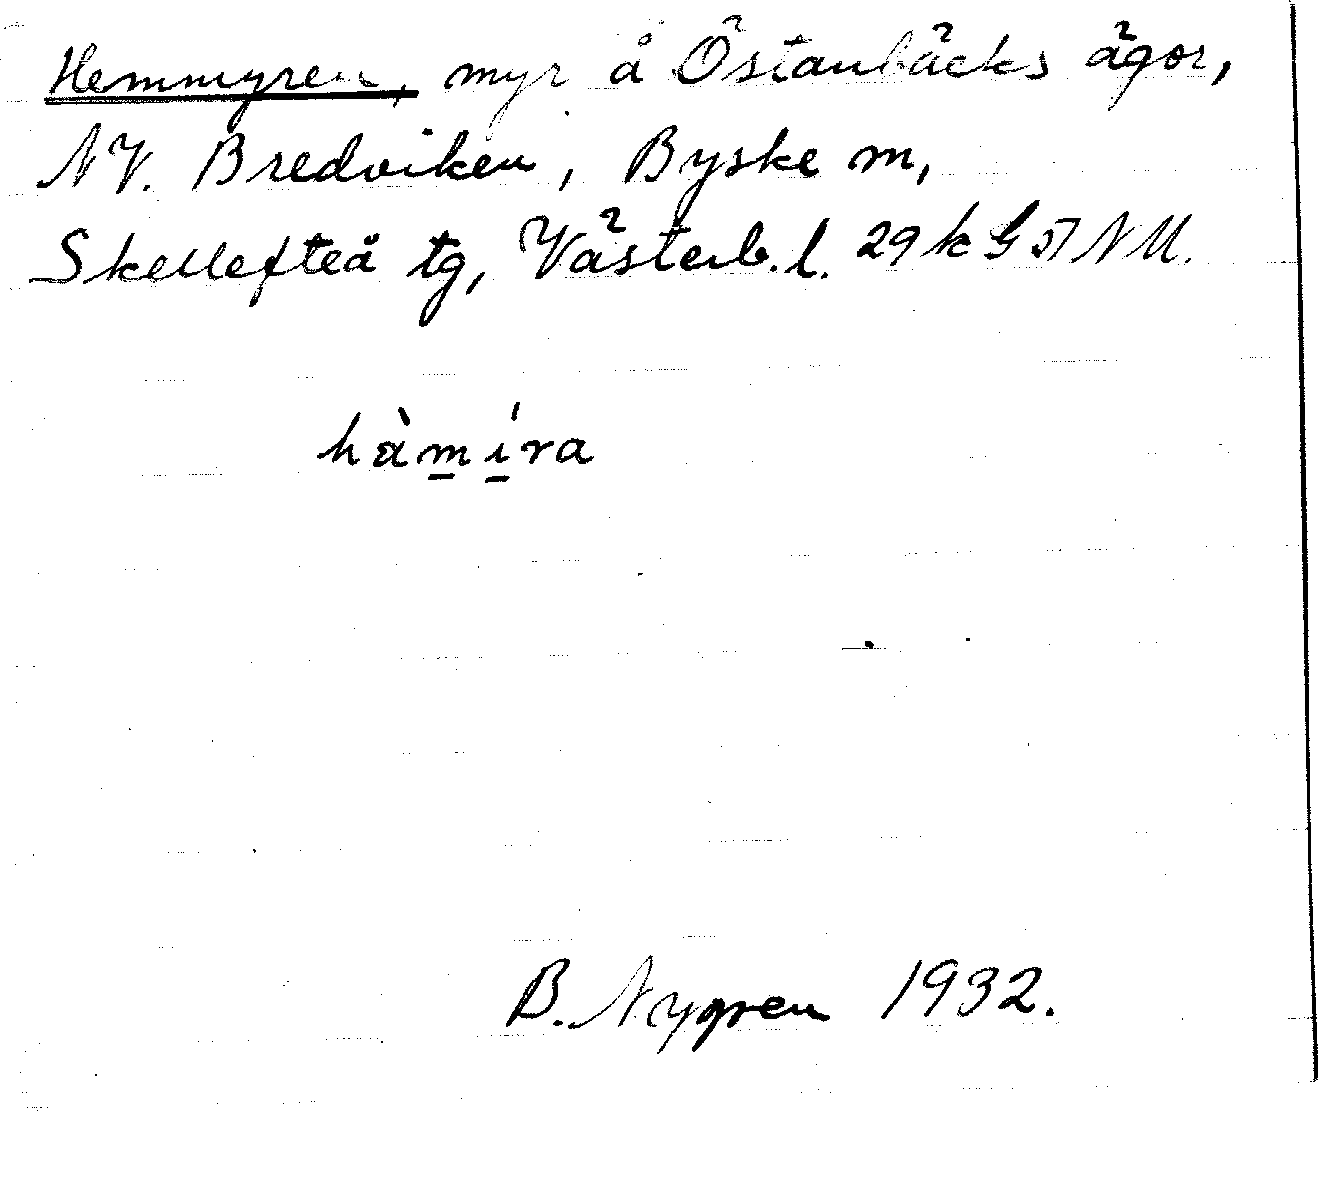 Hemmyren, myr å Östanbäcks ägor,
NV. Bredviken, Byske m,
Skellefteå tg, Västerb. l. 29 k
hàmi̍ra
B. Nygren 1932.